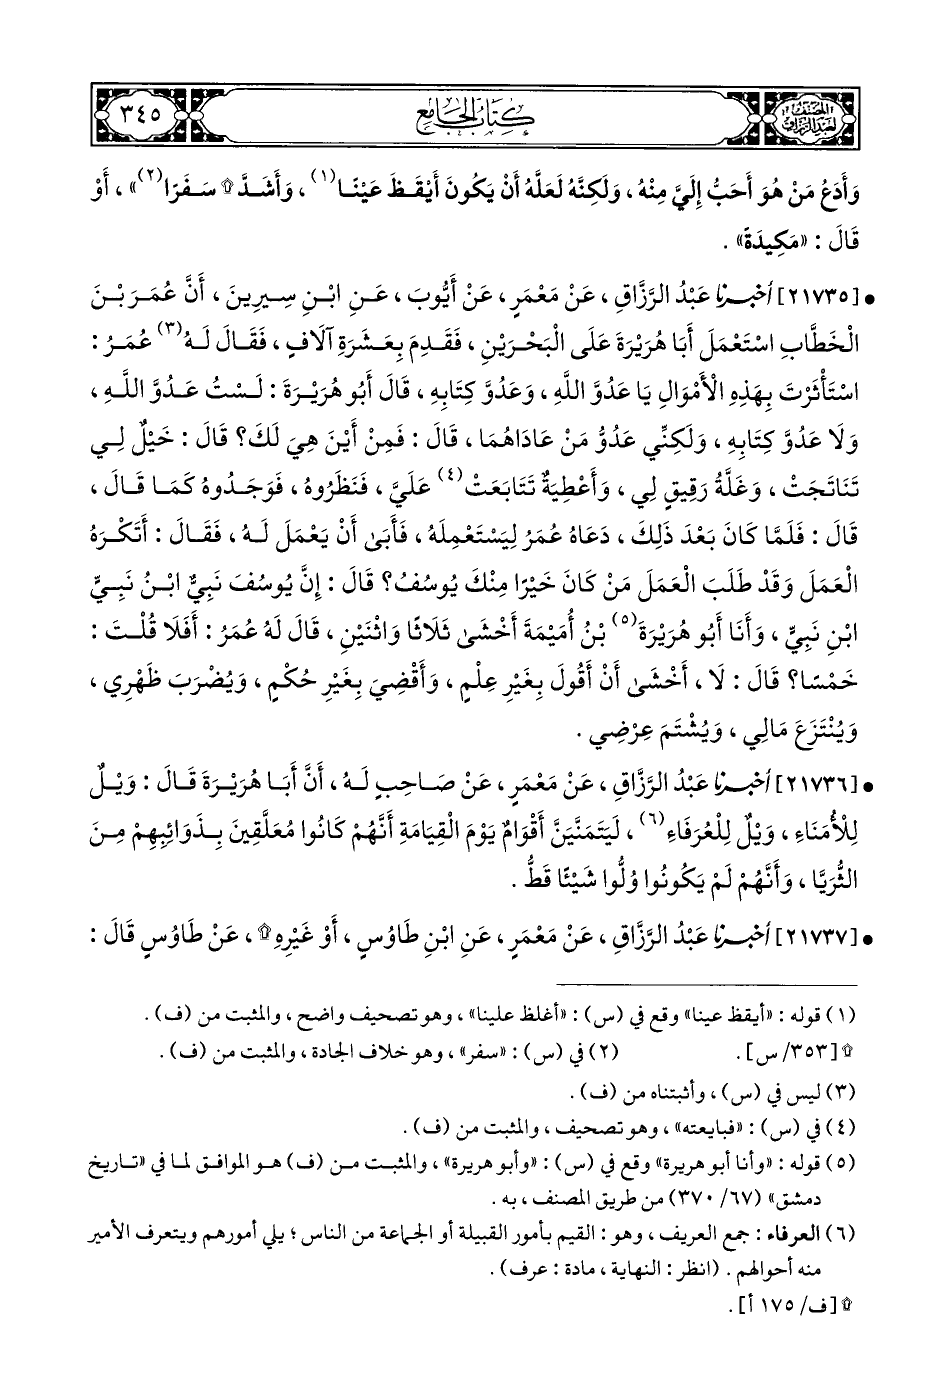 المصنف لعبد الرزاق
كتاب الجامع
٣٤٥
وَأَدَعُ مَنْ هُوَ أَحَبُّ إِلَيَّ مِنْهُ ، وَلَكِنَّهُ لَعَلَّهُ أَنْ يَكُونَ أَيْقَظَ عَيْنًا(١) ، وَأَشَدَّ ۩ سَفَرًا(٢)» ، أَوْ
قَالَ : «مَكِيدَةً» .
• [٢١٧٣٥] أخبرنا عَبْدُ الرَّزَّاقِ ، عَنْ مَعْمَرٍ ، عَنْ أَيُّوبَ ، عَنِ ابْنِ سِيرِينَ ، أَنَّ عُمَرَ بْنَ
الْخَطَّابِ اسْتَعْمَلَ أَبَا هُرَيْرَةَ عَلَى الْبَحْرَيْنِ ، فَقَدِمَ بِعَشَرَةِ آلَافٍ ، فَقَالَ لَهُ(٣) عُمَرُ :
اسْتَأْثَرْتَ بِهَذِهِ الْأَمْوَالِ يَا عَدُوَّ اللَّهِ ، وَعَدُوَّ كِتَابِهِ ، قَالَ أَبُو هُرَيْرَةَ : لَسْتُ عَدُوَّ اللَّهِ ،
وَلَا عَدُوَّ كِتَابِهِ ، وَلَكِنِّي عَدُوُّ مَنْ عَادَاهُمَا ، قَالَ : فَمِنْ أَيْنَ هِيَ لَكَ؟ قَالَ : خَيْلٌ لِي
تَنَاتَجَتْ ، وَغَلَّةُ رَقِيقٍ لِي ، وَأَعْطِيَةٌ تَتَابَعَتْ(٤) عَلَيَّ ، فَنَظَرُوهُ ، فَوَجَدُوهُ كَمَا قَالَ ،
قَالَ : فَلَمَّا كَانَ بَعْدَ ذَلِكَ ، دَعَاهُ عُمَرُ لِيَسْتَعْمِلَهُ ، فَأَبَى أَنْ يَعْمَلَ لَهُ ، فَقَالَ : أَتَكْرَهُ
الْعَمَلَ وَقَدْ طَلَبَ الْعَمَلَ مَنْ كَانَ خَيْرًا مِنْكَ يُوسُفُ؟ قَالَ : إِنَّ يُوسُفَ نَبِيٌّ ابْنُ نَبِيٍّ
ابْنِ نَبِيٍّ ، وَأَنَا أَبُو هُرَيْرَةَ(٥) بْنُ أُمَيْمَةَ أَخْشَى ثَلَاثًا وَاثْنَيْنِ ، قَالَ لَهُ عُمَرُ : أَفَلَا قُلْتَ :
خَمْسًا؟ قَالَ : لَا ، أَخْشَى أَنْ أَقُولَ بِغَيْرِ عِلْمٍ ، وَأَقْضِيَ بِغَيْرِ حُكْمٍ ، وَيُضْرَبَ ظَهْرِي ،
وَيُنْتَزَعَ مَالِي ، وَيُشْتَمَ عِرْضِي .
• [٢١٧٣٦] أخبرنا عَبْدُ الرَّزَّاقِ ، عَنْ مَعْمَرٍ ، عَنْ صَاحِبٍ لَهُ ، أَنَّ أَبَا هُرَيْرَةَ قَالَ : وَيْلٌ
لِلْأُمَنَاءِ ، وَيْلٌ لِلْعُرَفَاءِ(٦) ، لَيَتَمَنَّيَنَّ أَقْوَامٌ يَوْمَ الْقِيَامَةِ أَنَّهُمْ كَانُوا مُعَلَّقِينَ بِذَوَائِبِهِمْ مِنَ
الثُّرَيَّا ، وَأَنَّهُمْ لَمْ يَكُونُوا وُلُّوا شَيْئًا قَطُّ .
• [٢١٧٣٧] أخبرنا عَبْدُ الرَّزَّاقِ ، عَنْ مَعْمَرٍ ، عَنِ ابْنِ طَاوُسٍ ، أَوْ غَيْرِهِ ۩ ، عَنْ طَاوُسٍ قَالَ :
(١) قوله : «أيقظ عينا» وقع في (س) : «أغلظ علينا» ، وهو تصحيف واضح ، والمثبت من (ف) .
۩ [٣٥٣/ س] . (٢) في (س) : «سفر» ، وهو خلاف الجادة ، والمثبت من (ف) .
(٣) ليس في (س) ، وأثبتناه من (ف) .
(٤) في (س) : «فبايعته» ، وهو تصحيف ، والمثبت من (ف) .
(٥) قوله : «وأنا أبو هريرة» وقع في (س) : «وأبو هريرة» ، والمثبت من (ف) هو الموافق لما في «تاريخ
دمشق» (٦٧/ ٣٧٠) من طريق المصنف ، به .
(٦) العرفاء : جمع العريف ، وهو : القيم بأمور القبيلة أو الجماعة من الناس ؛ يلي أمورهم ويتعرف الأمير
منه أحوالهم . (انظر : النهاية ، مادة : عرف) .
۩ [ف/ ١٧٥ أ] .